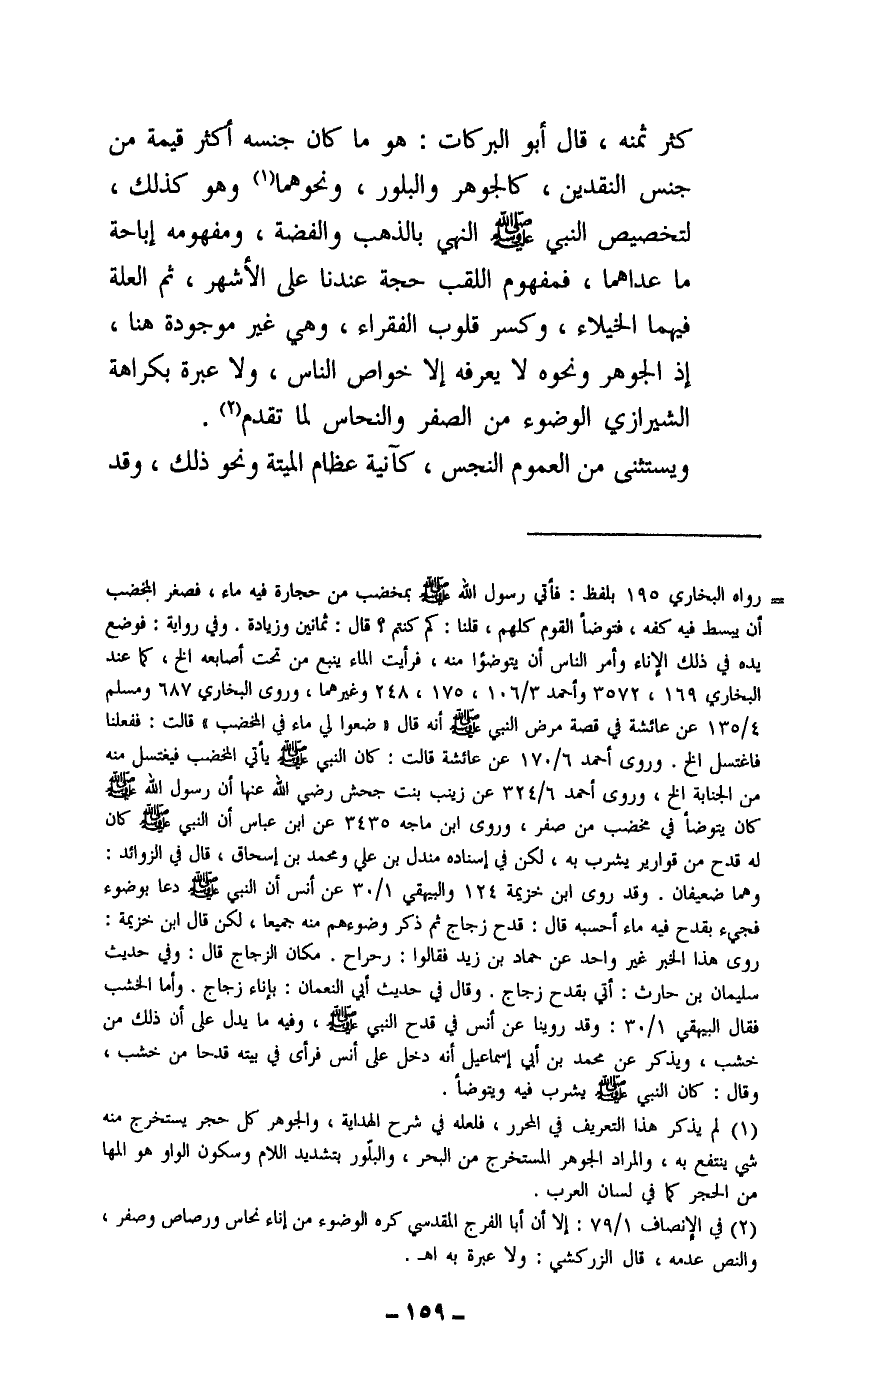 كثر ثمنه ، قال أبو البركات : هو ما كان جنسه أكثر قيمة من
جنس النقدين ، كالجوهر والبلور ، ونحوهما(١) وهو كذلك ،
لتخصيص النبي ﷺ النهي بالذهب والفضة ، ومفهومه إباحة
ما عداهما ، فمفهوم اللقب حجة عندنا على الأشهر ، ثم العلة
فيهما الخيلاء ، وكسر قلوب الفقراء ، وهي غير موجودة هنا ،
إذ الجوهر ونحوه لا يعرفه إلا خواص الناس ، ولا عبرة بكراهة
الشيرازي الوضوء من الصفر والنحاس لما تقدم(٢) .
ويستثنى من العموم النجس ، كآنية عظام الميتة ونحو ذلك ، وقد
= رواه البخاري ١٩٥ بلفظ : فأتي رسول الله ﷺ بمخضب من حجارة فيه ماء ، فصغر المخضب
أن يبسط فيه كفه ، فتوضأ القوم كلهم ، قلنا : كم كنتم ؟ قال : ثمانين وزيادة . وفي رواية : فوضع
يده في ذلك الإناء وأمر الناس أن يتوضؤا منه ، فرأيت الماء ينبع من تحت أصابعه الخ ، كما عند
البخاري ١٦٩ ، ٣٥٧٢ وأحمد ١٠٦/٣ ، ١٧٥ ، ٢٤٨ وغيرهما ، وروى البخاري ٦٨٧ ومسلم
١٣٥/٤ عن عائشة في قصة مرض النبي ﷺ أنه قال « ضعوا لي ماء في المخضب » قالت : ففعلنا
فاغتسل الخ . وروى أحمد ١٧٠/٦ عن عائشة قالت : كان النبي ﷺ يأتي المخضب فيغتسل منه
من الجنابة الخ ، وروى أحمد ٣٢٤/٦ عن زينب بنت جحش رضي الله عنها أن رسول الله ﷺ
كان يتوضأ في مخضب من صفر ، وروى ابن ماجه ٣٤٣٥ عن ابن عباس أن النبي ﷺ كان
له قدح من قوارير يشرب به ، لكن في إسناده مندل بن علي ومحمد بن إسحاق ، قال في الزوائد :
وهما ضعيفان . وقد روى ابن خزيمة ١٢٤ والبيهقي ٣٠/١ عن أنس أن النبي ﷺ دعا بوضوء
فجيء بقدح فيه ماء أحسبه قال : قدح زجاج ثم ذكر وضوءهم منه جميعا ، لكن قال ابن خزيمة :
روى هذا الخبر غير واحد عن حماد بن زيد فقالوا : رحراح . مكان الزجاج قال : وفي حديث
سليمان بن حارث : أتي بقدح زجاج . وقال في حديث أبي النعمان : بإناء زجاج . وأما الخشب
فقال البيهقي ٣٠/١ : وقد روينا عن أنس في قدح النبي ﷺ ، وفيه ما يدل على أن ذلك من
خشب ، ويذكر عن محمد بن أبي إسماعيل أنه دخل على أنس فرأى في بيته قدحا من خشب ،
وقال : كان النبي ﷺ يشرب فيه ويتوضأ .
(١) لم يذكر هذا التعريف في المحرر ، فلعله في شرح الهداية ، والجوهر كل حجر يستخرج منه
شي ينتفع به ، والمراد الجوهر المستخرج من البحر ، والبلّور بتشديد اللام وسكون الواو هو المها
من الحجر كما في لسان العرب .
(٢) في الإنصاف ٧٩/١ : إلا أن أبا الفرج المقدسي كره الوضوء من إناء نحاس ورصاص وصفر ،
والنص عدمه ، قال الزركشي : ولا عبرة به اهـ .
ـ ١٥٩ ـ